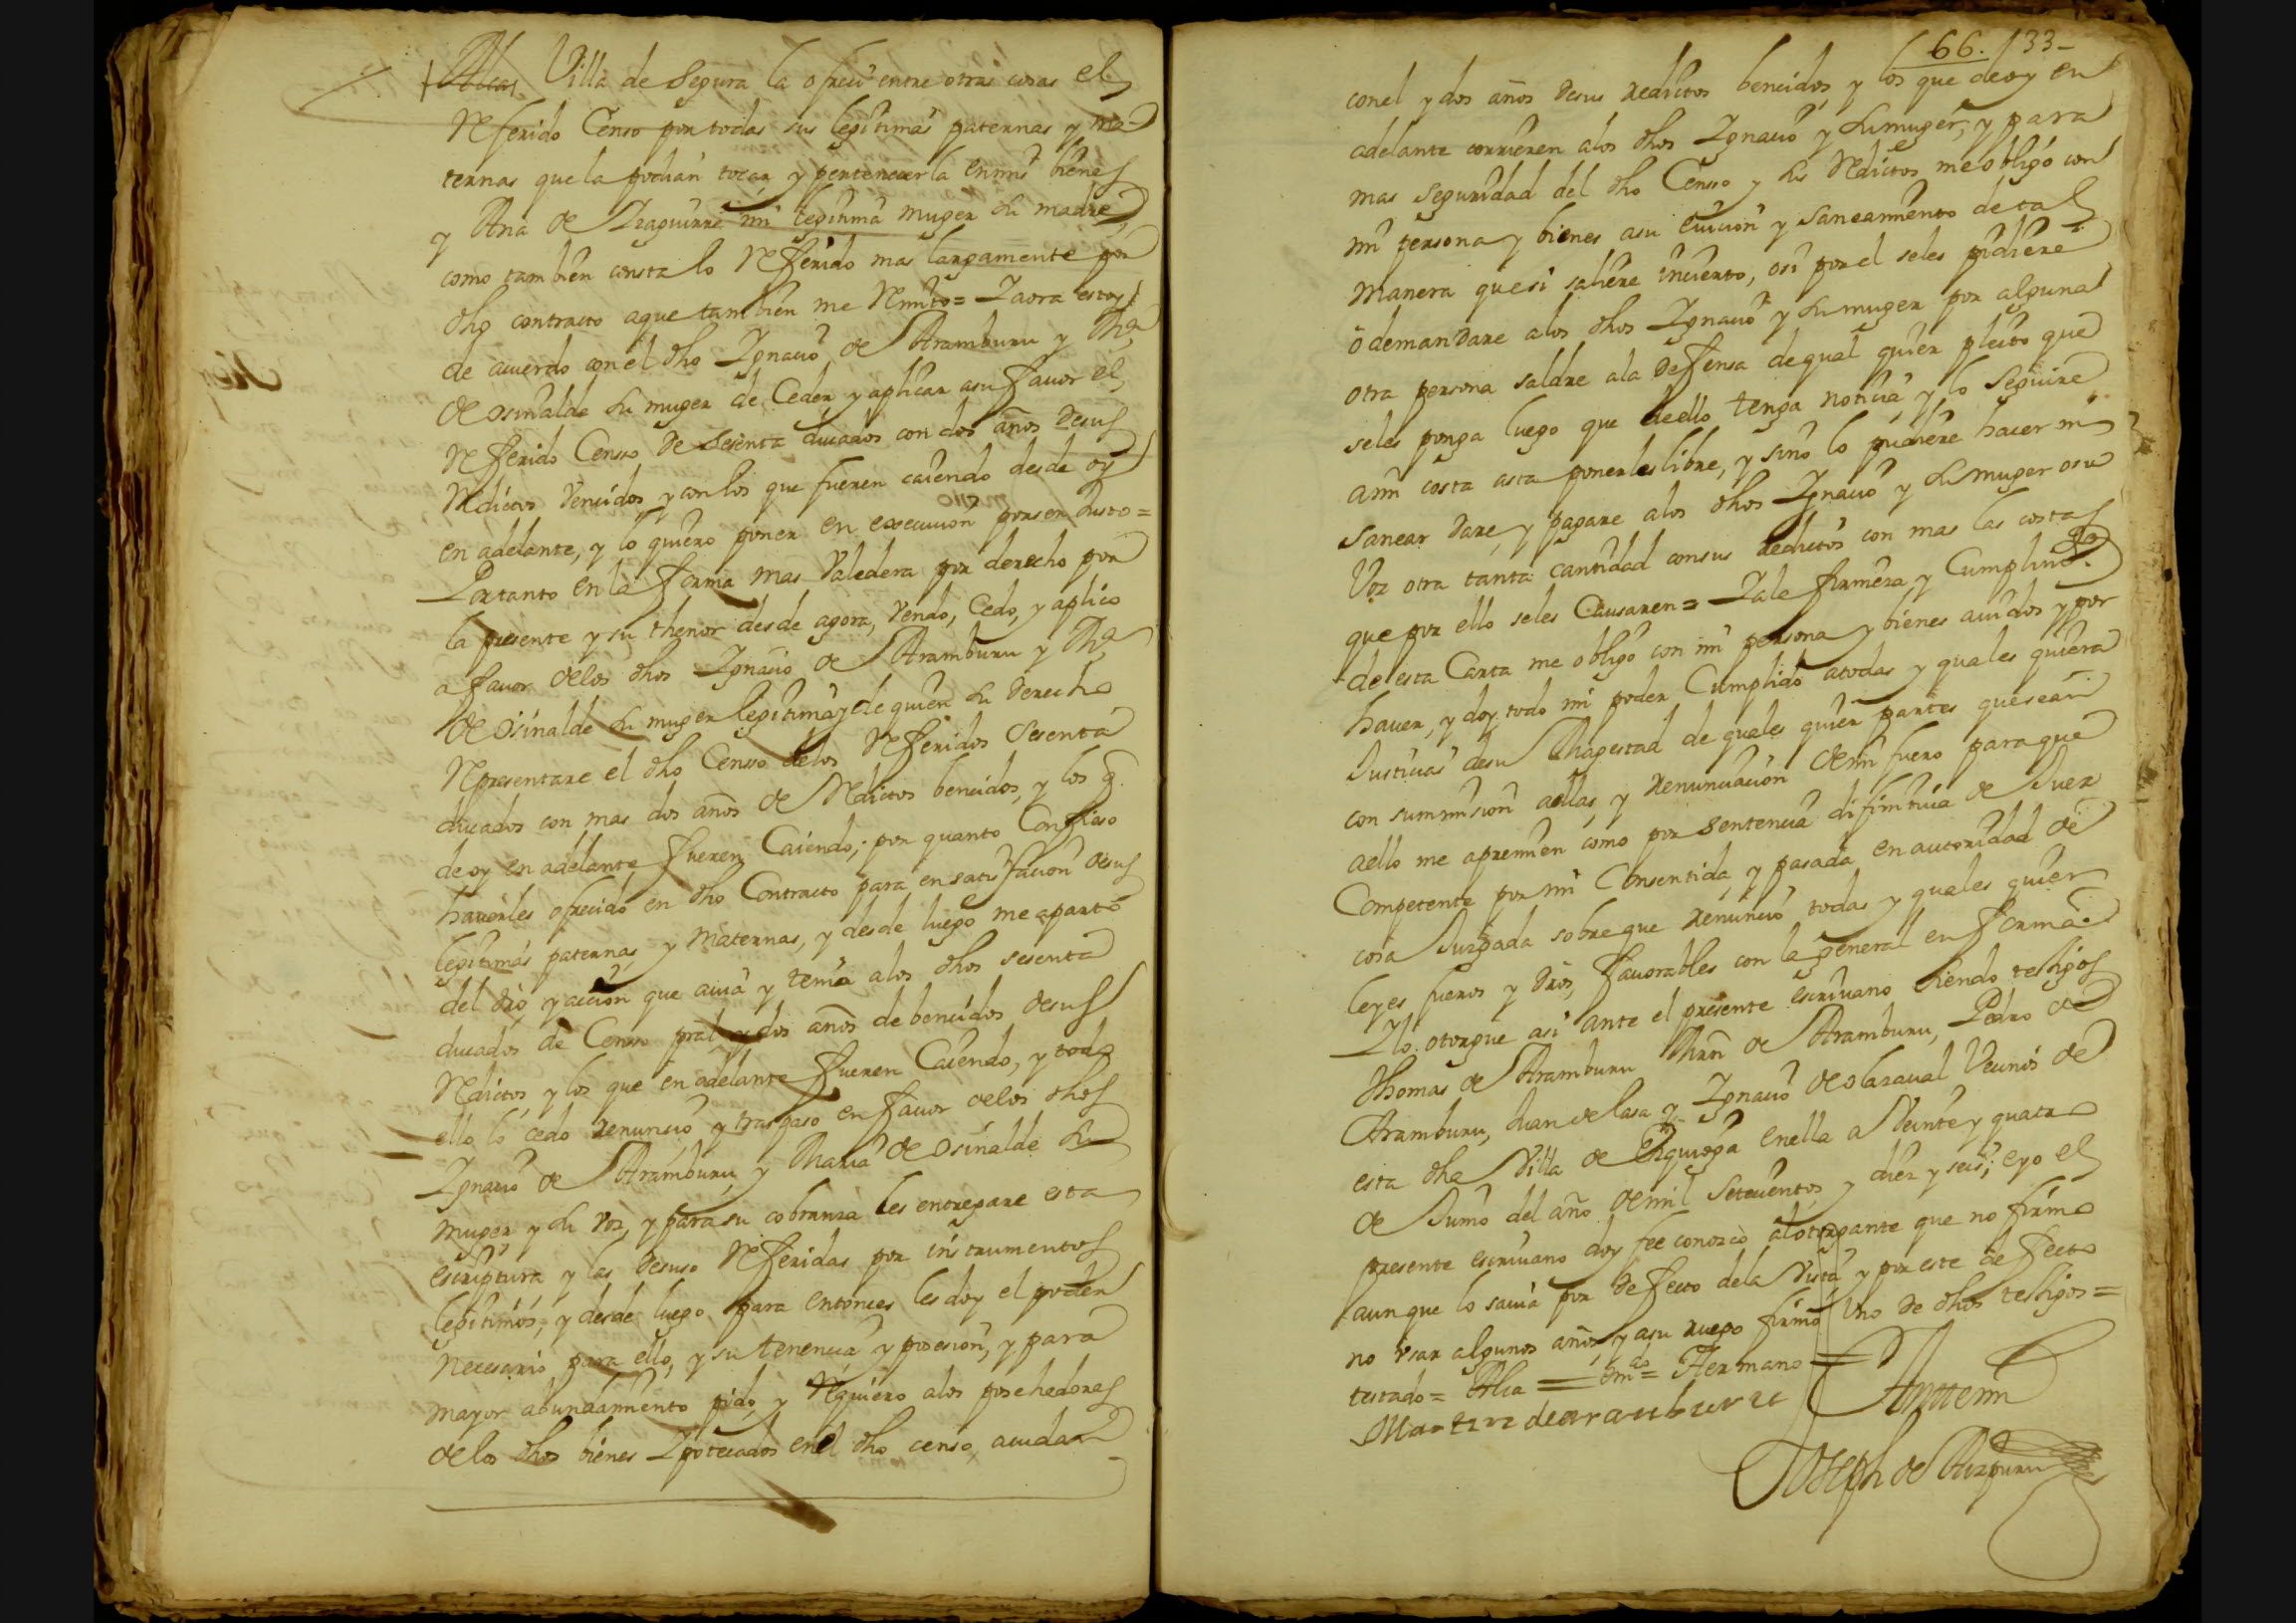 Villa de Segura la ofreci entre otras cosas el
Referido Censo por todas sus legitimas paternas y ma
ternas que la podian tocar y pertenecerla en mis bienes
y Ana de Yraguirre mi legitima muger su madre,
como tambien consta lo Referido mas largamente por
dho contracto aque tambien me Remito= Y aora estoy
de acuerdo con el dho Ygnacio de Aramburu y Mª
de osinalde su muger de Ceder y aplicar asu favor el
Referido Censo de Sesenta ducados con dos años desus
Reditos Vencidos, y con los que fueren caiendo desde oy
en adelante, y lo quiero poner en execucion por ser Justo=
Por tanto en la forma mas Valedera por derecho por
la presente y su thenor desde agora, Vendo, Cedo, y aplico
a favor delos dhos Ygnacio de Aramburu y Mª
de Osinalde su muger legitima, y de quien su derecho
Representare el dho Censo delos Referidos Sesenta
ducados con mas dos años de Reditos bencidos, y los q.
de oy en adelante fueren Caiendo; por quanto Confieso
haverles ofrecido en dho Contracto para en satisfacion desus
legitimas paternas y Maternas, y desde luego me aparto
del dro, y accion que avia y tenia alos dhos sesenta
ducados de Censo pral y dos años de bencidos desus
Reditos y los que en adelante fueren Caiendo, y todo
ello lo cedo renuncio y traspaso en favor delos dhos
Ygnacio de Aramburu, y Maria de Osinalde su
muger y su voz, y para su cobranza les entregare esta
escriptura, y las desuso Referidas por instrumentos
legitimos, y desde luego para entonces les doy el poder
necesario para ello, y su tenencia y posesion, y para
mayor abundamiento pido, y Requiero alos posehedores
delos dhos bienes Ypotecados enel dho censo, acudan
66. 133-
conel y dos años desus reditos bencidos y los que deoy en
adelante corrieren alos dhos Ygnacio y su muger, y para
mas seguridad del dho Censo y sus Reditos me obligo con
mi persona y bienes asu eviccion y saneamiento de tal
manera que si saliere incierto, osi por el seles pidiere
o demandare alos dhos Ygnacio y su muger por alguna
otra persona saldre ala defensa de qual quier pleito que
seles ponga luego que deello tenga noticia, y lo Seguire
ami costa asta ponerles libre, y sino lo pudiere hacer ni
sanear dare, y pagare alos dhos Ygnacio y su muger osu
Voz otra tanta cantidad consus reditos con mas las costas
que por ello seles Causaren= Y ale firmeza, y Cumplimto
de esta Carta me obligo con mi persona y bienes avidos y por
haver, y doy todo mi poder Cumplido atodas y quales quiera
Justicias desu Magestad de quales quier partes que sean
con summision aellas, y renunciacion demi fuero para que
aello me apremien como por sentencia difinitiva de Juez
Competente por mi Consentida, y pasada en autoridad de
cosa Juzgada sobre que renuncio todas y quales quier
leyes fueros y dros, favorables con la general en forma.
Y lo otorgue asi ante el presente escrivano siendo testigos
Thomas de Aramburu Mrn de Aramburu, Pedro de
Aramburu, Juan de lasa y Ygnacio de olaraval Vecinos de
esta dha Villa de Ezquioga enella a Veinte y quatro
de Junio del año de mil Setecientos y diez y seis; e yo el
presente escrivano doy fee conozco al otorgante que no firmo
aunque lo savia por defecto dela vista y por este defecto
no usar algunos años, y asu ruego firmo Uno de dhos testigos=
testado= Alia = Hermano =
Martin dearanburu Ante mi
Joseph de Aizpuru